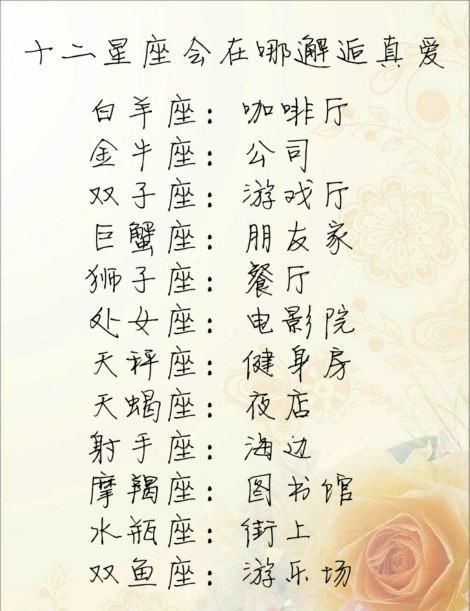 十二星座会在哪邂逅真爱
白羊座：咖啡厅
金牛座：公司
双子座：游戏厅
巨蟹座：朋友家
狮子座：餐厅
处女座：电影院
天秤座：健身房
天蝎座：夜店
射手座：海边
摩羯座：图书馆
水瓶座：街上
双鱼座：游乐场